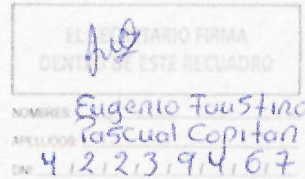 EL SECRETARIO FIRMA
DENTRO DE ESTE RECUADRO
NOMBRES Eugenio Faustino
APELLIDOS Pascual Copitan
DNI 4 2 2 3 9 4 6 7